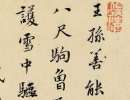 王孫善能
八尺駒魯
護雪中驢